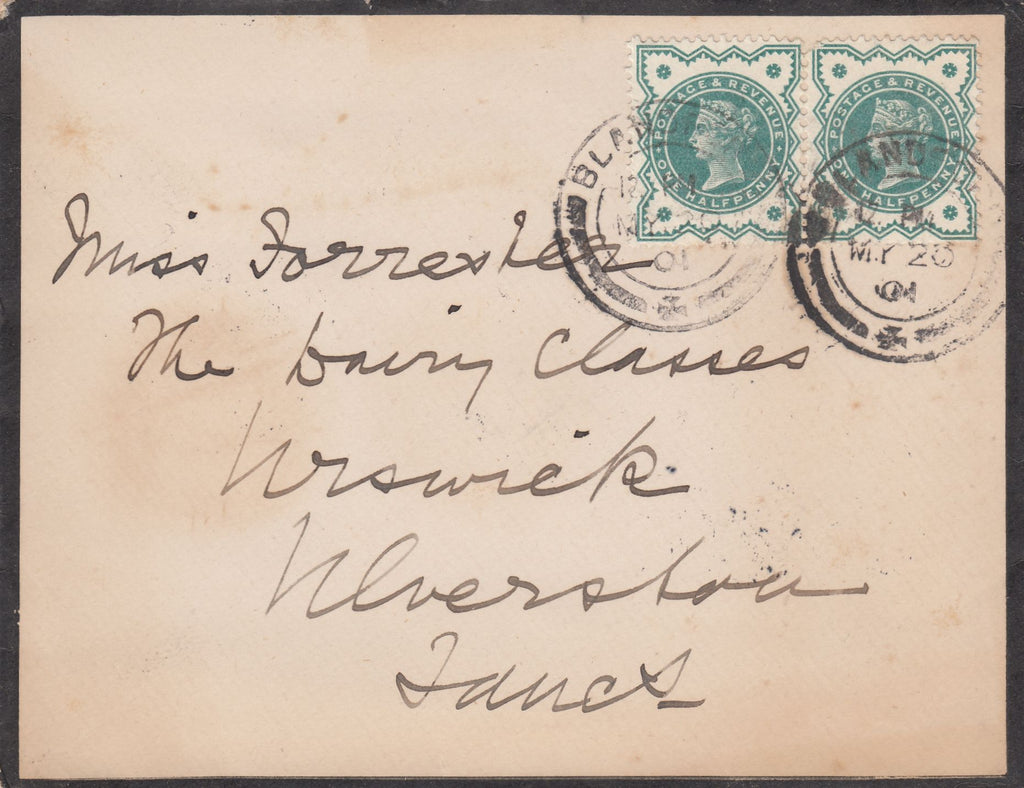 POSTAGE & REVENUE
ONE HALFPENNY
POSTAGE & REVENUE
ONE HALFPENNY
BLAND
12
MY
01
MY 20
01
Miss Forrester
The Dairy Classes
Urswick
Ulverston
Lancs